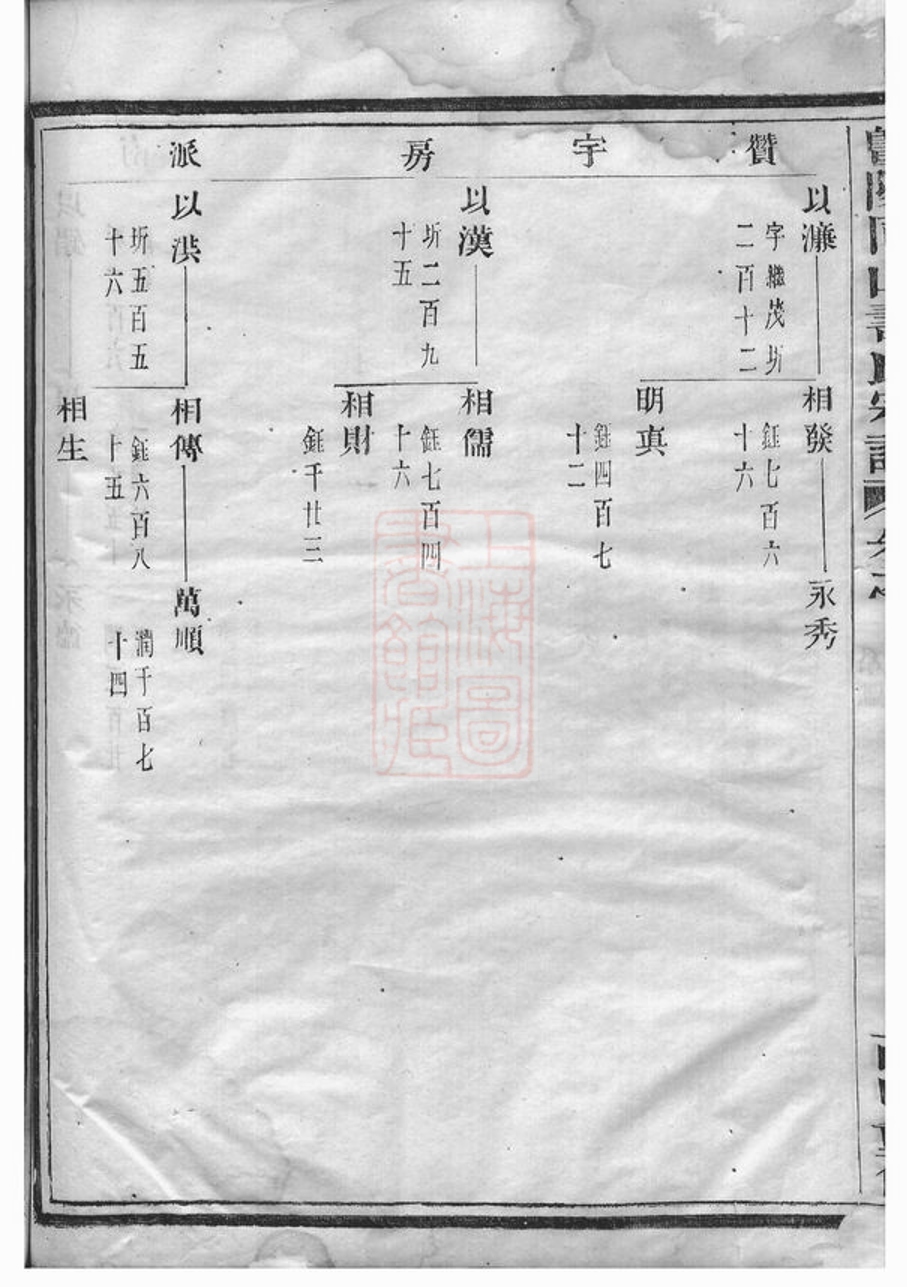 贊宇房派
以濂
字繼茂圻
二百十二
相發
鉦七百六
十六
永秀
明真
鉦四百七
十二
以漢
圻二百九
十五
相儒
鉦七百四
十六
相財
鉦千廿三
以洪
圻五百五
十六
相傳
鉦六百八
十五
萬順
潤千百七
十四
相生
上海圖書館藏